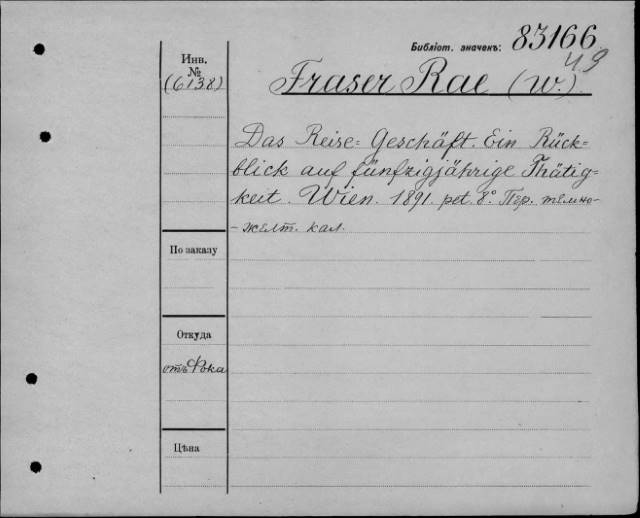 Библіот. значекъ: 83166
49
Инв. №
(6138)
Fraser Rae (W.)
Das Reise=Geschäft. Ein Rück=
blick auf fünfzigjährige Thätig=
keit. Wien. 1891. pet. 8°. Пер. темно-
- желт. кал.
По заказу
Откуда
отъ Фока
Цѣна